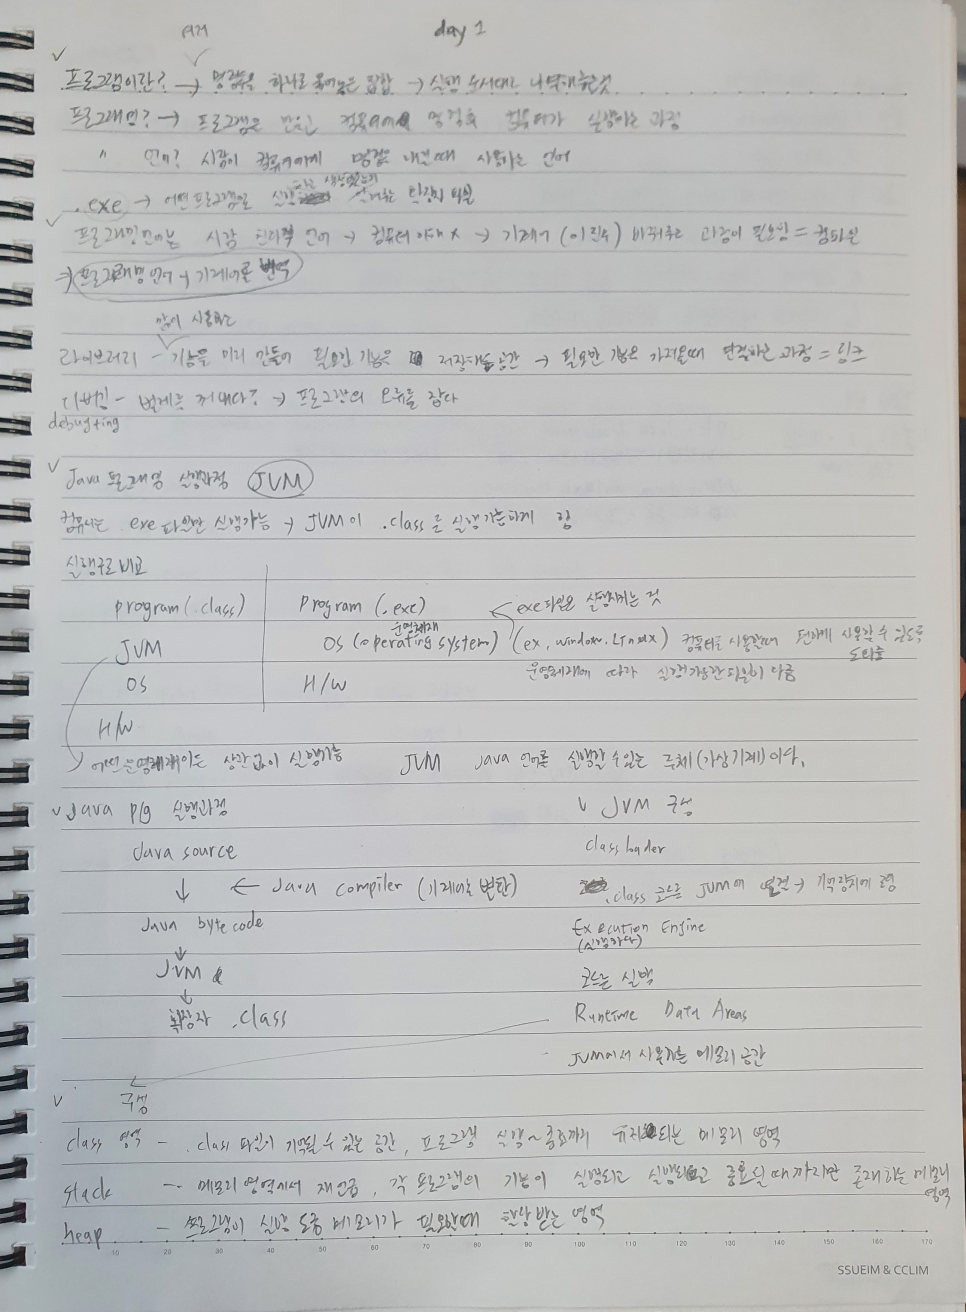 day 1
순서
프로그램이란? → 명령을 하나로 묶어놓은 집합 → 실행 순서대로 나열해놓은것
프로그래밍? → 프로그램을 만들고 컴퓨터에게 명령을 컴퓨터가 실행하는 과정
" 언어? 사람이 컴퓨터에게 명령을 내릴때 사용하는 언어
.exe → 어떤프로그램을 실행 확장자 파일
프로그래밍언어는 사람 언어 → 컴퓨터 이해 x → 기계어 (이진수) 바꿔주는 과정이 필요함 = 컴파일
⇒ 프로그래밍 언어 → 기계어로 번역
많이 사용하는
라이브러리 - 기능을 미리 만들어 필요한 기능을 저장해놓은공간 → 필요한 기능을 가져올때 연결하는 과정 = 링크
디버깅 - 벌레를 꺼내다? → 프로그램의 오류를 잡다
debugting
Java 프로그래밍 실행과정 JVM
컴퓨터는 exe 파일만 실행가능 → JVM이 .class를 실행가능하게 함
실행구조비교
program (.class) Program (.exe) ← exe파일을 실행시키는 것
운영체제
JVM OS (operating system) (ex, window, Linux) 컴퓨터를 사용할때 편하게 사용할 수 있도록
도와줌
OS H/W 운영체제에 따라 실행가능한파일이 다름
H/W
어떤운영체제이든 상관없이 실행가능 JVM Java 언어를 실행할 수 있는 주체(가상기계)이다.
Java p/g 실행과정 JVM 구성
Java source Class loader
↓ ← Java compiler (기계어로 변환) .class 코드를 JVM에 연결 → 기억장치에 로딩
Java bytecode Execution Engine
(실행하다)
↓
JVM 코드를 실행
↓
확장자 .class Runtime Data Areas
- JVM에서 사용하는 메모리 공간
구성
class 영역 - .class 파일이 기억될 수 있는 공간, 프로그램 실행~종료까지 유지되는 메모리 영역
stack - 메모리 영역에서 , 각 프로그램의 기능이 실행되고 실행되고 종료될때까지만 존재하는 메모리
영역
heap - 프로그램이 실행 도중 메모리가 필요할때 할당 받는 영역
10 20 30 40 50 60 70 80 90 100 110 120 130 140 150 160 170
SSUEIM & CCLIM